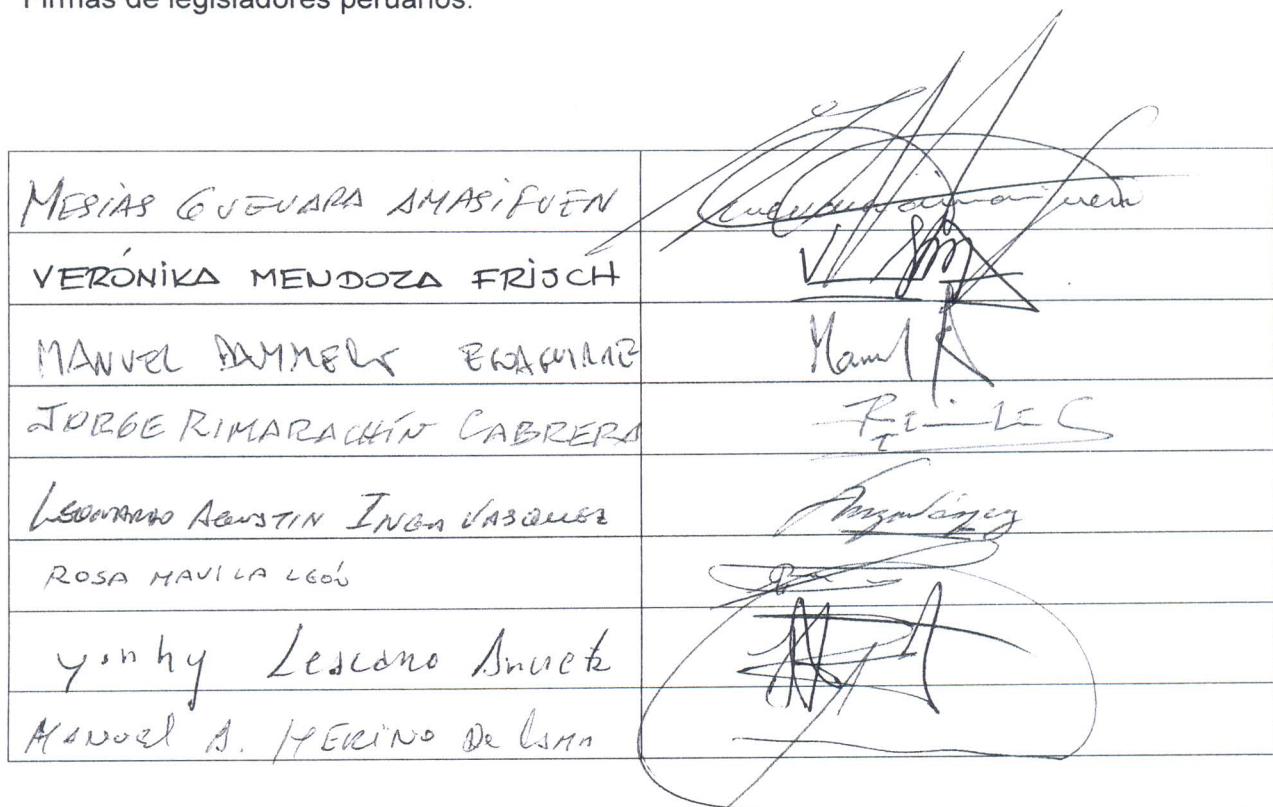 Firmas de legisladores peruanos:
MESIAS GUEVARA AMASIFUEN
VERÓNIKA MENDOZA FRISCH
MANUEL DAMMERT EGOAGUIRRE
JORGE RIMARACHÍN CABRERA
LEONARDO AGUSTIN INGA VASQUEZ
ROSA MAVILA LEÓN
yonhy Lescano Ancieta
MANUEL A. MERINO De LAMA